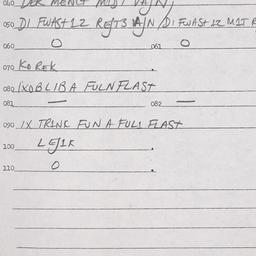 040 DER MENCT MIDI VAJN,
050 DI FWAST 12 REJTS VAJN / DI FWAST 12 MIT F
060 O 061 O
070 KOREK .
080 IXOBLIBA FULNFLAST
081 — 082 —
090 IX TRINC FUN A FULI FLAST
100 LEJIK .
110 O .